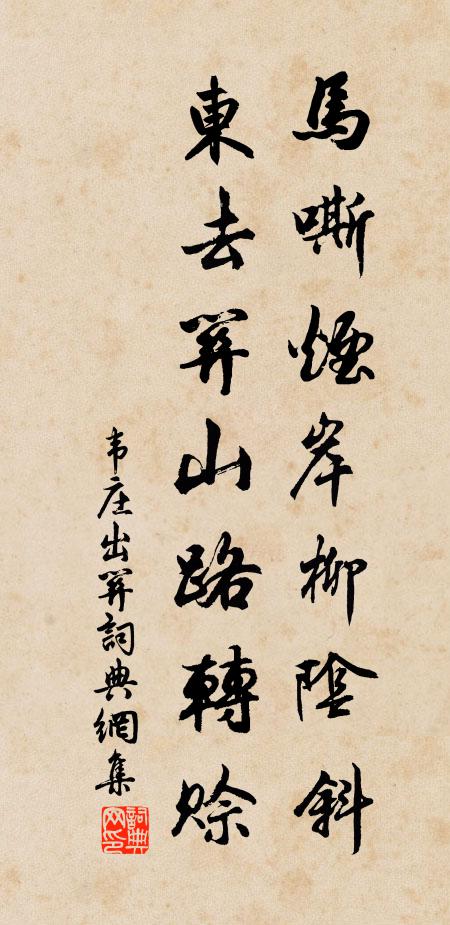 馬嘶煙岸柳陰斜
東去關山路轉賒
韦庄出關詞典網集
詞典网印